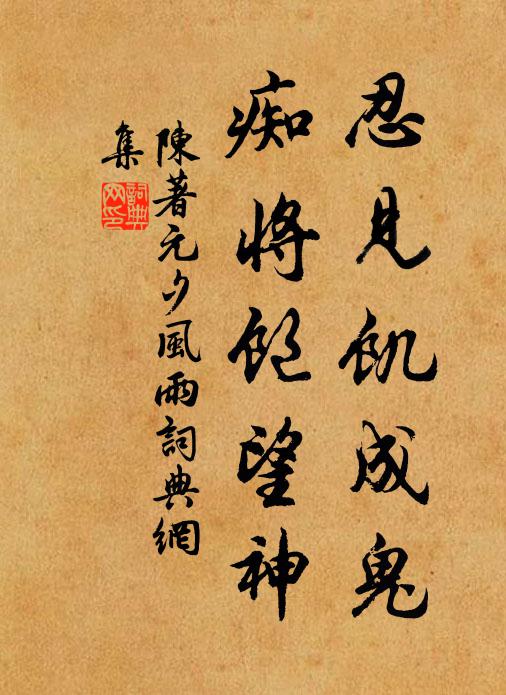 忍見飢成鬼
痴將飽望神
陳著元夕風雨詞典網
集
詞典網印